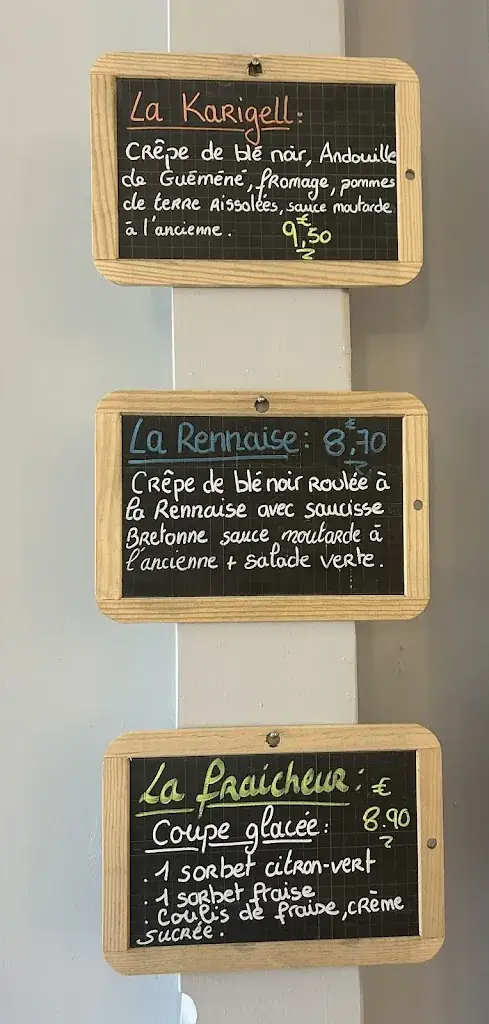 La Karigell:
Crêpe de blé noir, Andouille
de Guémené, fromage, pommes
de terre Rissolées, sauce moutarde
à l'ancienne.
€
9,50
La Rennaise: 8,70
€
Crêpe de blé noir Roulée à
la Rennaise avec saucisse
Bretonne sauce moutarde à
l'ancienne + salade verte.
La fraîcheur: €
Coupe glacée: 8.90
. 1 sorbet citron-vert
. 1 sorbet fraise
. Coulis de fraise, crème
sucrée.